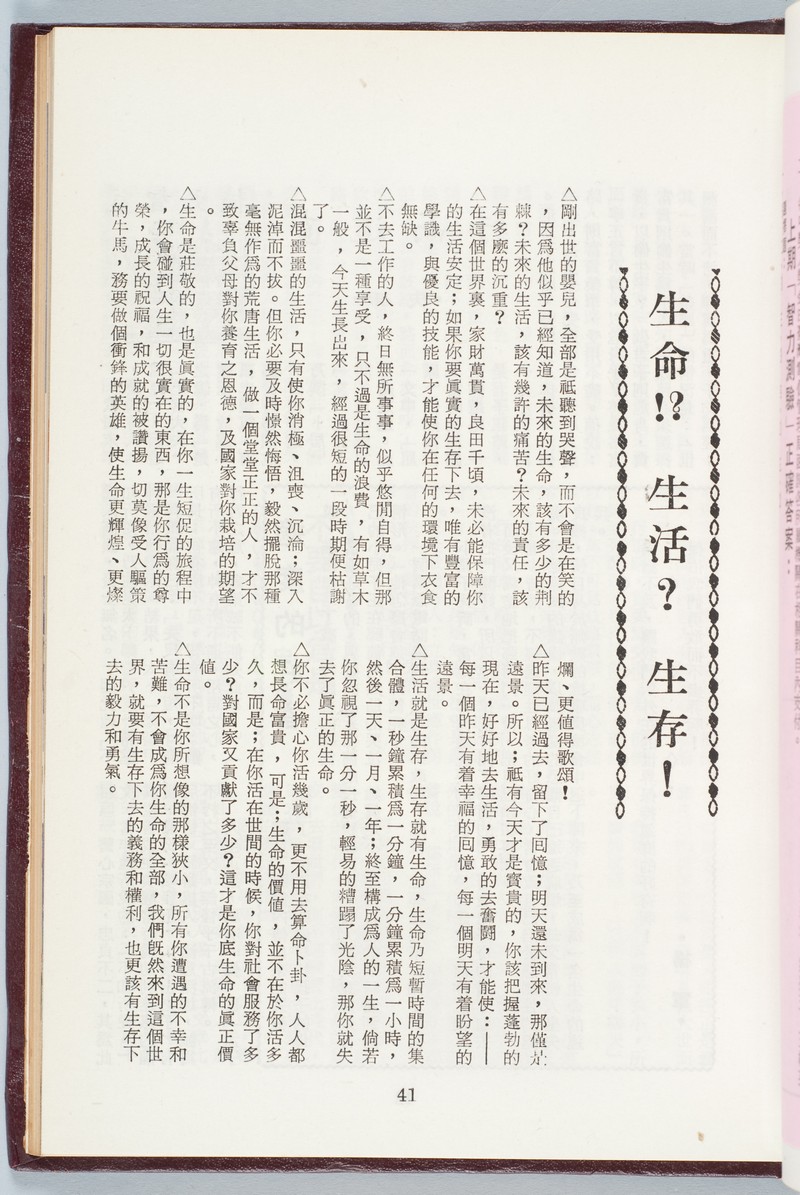 生命!? 生活? 生存!
△剛出世的嬰兒,全部是祗聽到哭聲,而不會是在笑的
,因爲他似乎已經知道,未來的生命,該有多少的荆
棘?未來的生活,該有幾許的痛苦?未來的責任,該
有多麽的沉重?
△在這個世界裏,家財萬貫,良田千頃,未必能保障你
的生活安定;如果你要眞實的生存下去,唯有豐富的
學識,與優良的技能,才能使你在任何的環境下衣食
無缺。
△不去工作的人,終日無所事事,似乎悠閒自得,但那
並不是一種享受,只不過是生命的浪費,有如草木
一般,今天生長出來,經過很短的一段時期便枯謝
了。
△混混噩噩的生活,只有使你消極、沮喪、沉淪;深入
泥淖而不拔。但你必要及時憬然悔悟,毅然擺脫那種
毫無作爲的荒唐生活,做一個堂堂正正的人,才不
致辜負父母對你養育之恩德,及國家對你栽培的期望
。
△生命是莊敬的,也是眞實的,在你一生短促的旅程中
,你會碰到人生一切很實在的東西,那是你行爲的尊
榮,成長的祝福,和成就的被讚揚,切莫像受人驅策
的牛馬,務要做個衝鋒的英雄,使生命更輝煌、更燦
爛、更值得歌頌!
△昨天已經過去,留下了囘憶;明天還未到來,那僅是
遠景。所以;祗有今天才是寳貴的,你該把握蓬勃的
現在,好好地去生活,勇敢的去奮鬪,才能使:——
每一個昨天有着幸福的囘憶,每一個明天有着盼望的
遠景。
△生活就是生存,生存就有生命,生命乃短暫時間的集
合體,一秒鐘累積爲一分鐘,一分鐘累積爲一小時,
然後一天、一月、一年;終至構成爲人的一生,倘若
你忽視了那一分一秒,輕易的糟蹋了光陰,那你就失
去了眞正的生命。
△你不必擔心你活幾歲,更不用去算命卜卦,人人都
想長命富貴,可是;生命的價值,並不在於你活多
久,而是;在你活在世間的時候,你對社會服務了多
少?對國家又貢獻了多少?這才是你底生命的眞正價
值。
△生命不是你所想像的那樣狹小,所有你遭遇的不幸和
苦難,不會成爲你生命的全部,我們旣然來到這個世
界,就要有生存下去的義務和權利,也更該有生存下
去的毅力和勇氣。
41
上期「智力測驗」正確答案: